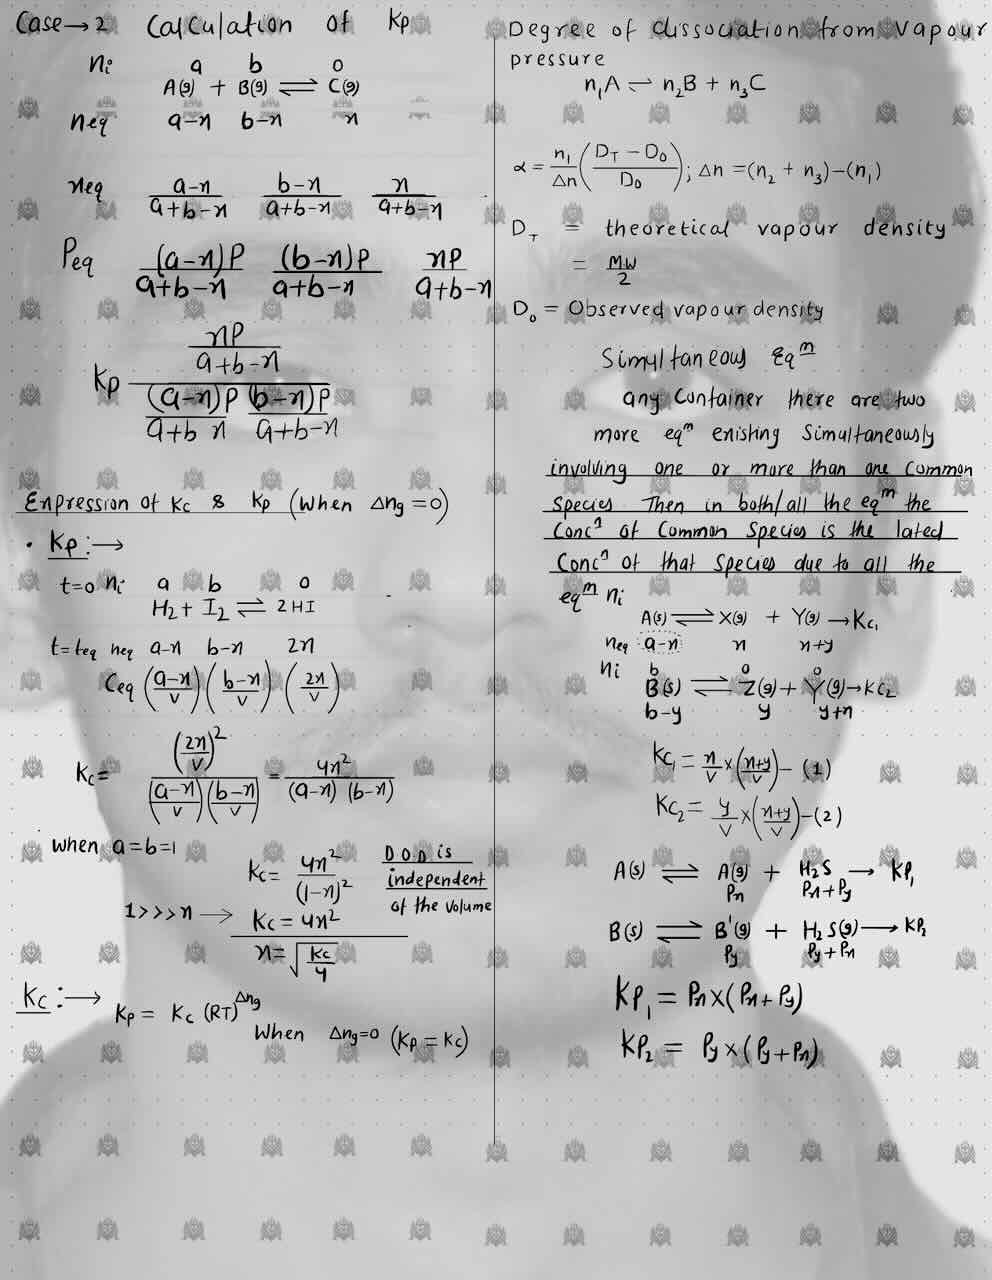 Case→2 Calculation of Kp
ni a b 0
A(g) + B(g) ⇌ C(g)
neq a-x b-x x
xeq (a-x)/(a+b-x) (b-x)/(a+b-x) x/(a+b-x)
Peq (a-x)P/(a+b-x) (b-x)P/(a+b-x) xP/(a+b-x)
Kp (xP/(a+b-x))/((a-x)P/(a+b x) (b-x)P/(a+b-x))
Expression of Kc & Kp (When Δng=0)
• Kp:→
t=0 ni a b 0
H2+ I2 ⇌ 2HI
t=teq neq a-x b-x 2x
Ceq ((a-x)/v) ((b-x)/v) (2x/v)
Kc= (2x/v)²/((a-x)/v)((b-x)/v) = 4x²/(a-x)(b-x)
when a=b=1
Kc= 4x²/(1-x)²
D.O.D is
independent
of the volume
1>>>x → Kc=4x²
x=√(Kc/4)
Kc:→
Kp= Kc (RT)^Δng
When Δng=0 (Kp=Kc)
Degree of dissociation from Vapour
pressure
n₁A ⇌ n₂B + n₃C
α= n₁/Δn ((DT-D0)/D0); Δn=(n₂+n₃)-(n₁)
DT = theoretical vapour density
= MW/2
D0 = Observed vapour density
Simultaneous Eqm
any Container there are two
more eqm existing Simultaneously
involving one or more than one Common
Species Then in both/all the eqm the
Concn of Common Species is the lated
Concn of that Species due to all the
eqm ni
A(s) ⇌ X(g) + Y(g) →Kc₁
neq a-x x x+y
ni b 0 0
B(s) ⇌ Z(g)+ Y(g)→KC₂
b-y y y+x
KC₁= x/V×((x+y)/V)-(1)
KC₂= y/V×((x+y)/V)-(2)
A(s) ⇌ A(g) + H₂S → KP₁
Px Px+Py
B(s) ⇌ B'(g) + H₂S(g)→KP₂
Py Py+Px
KP₁ = Px×(Px+Py)
KP₂ = Py×(Py+Px)